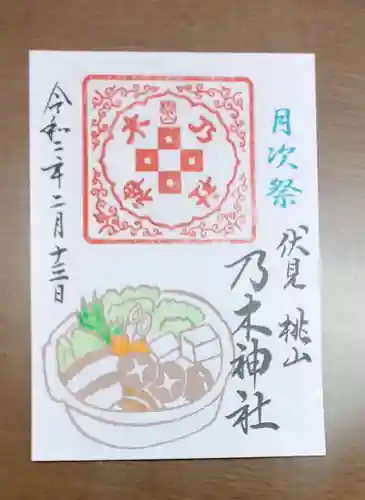 月次祭
伏見 桃山
乃木神社
令和二年二月十三日